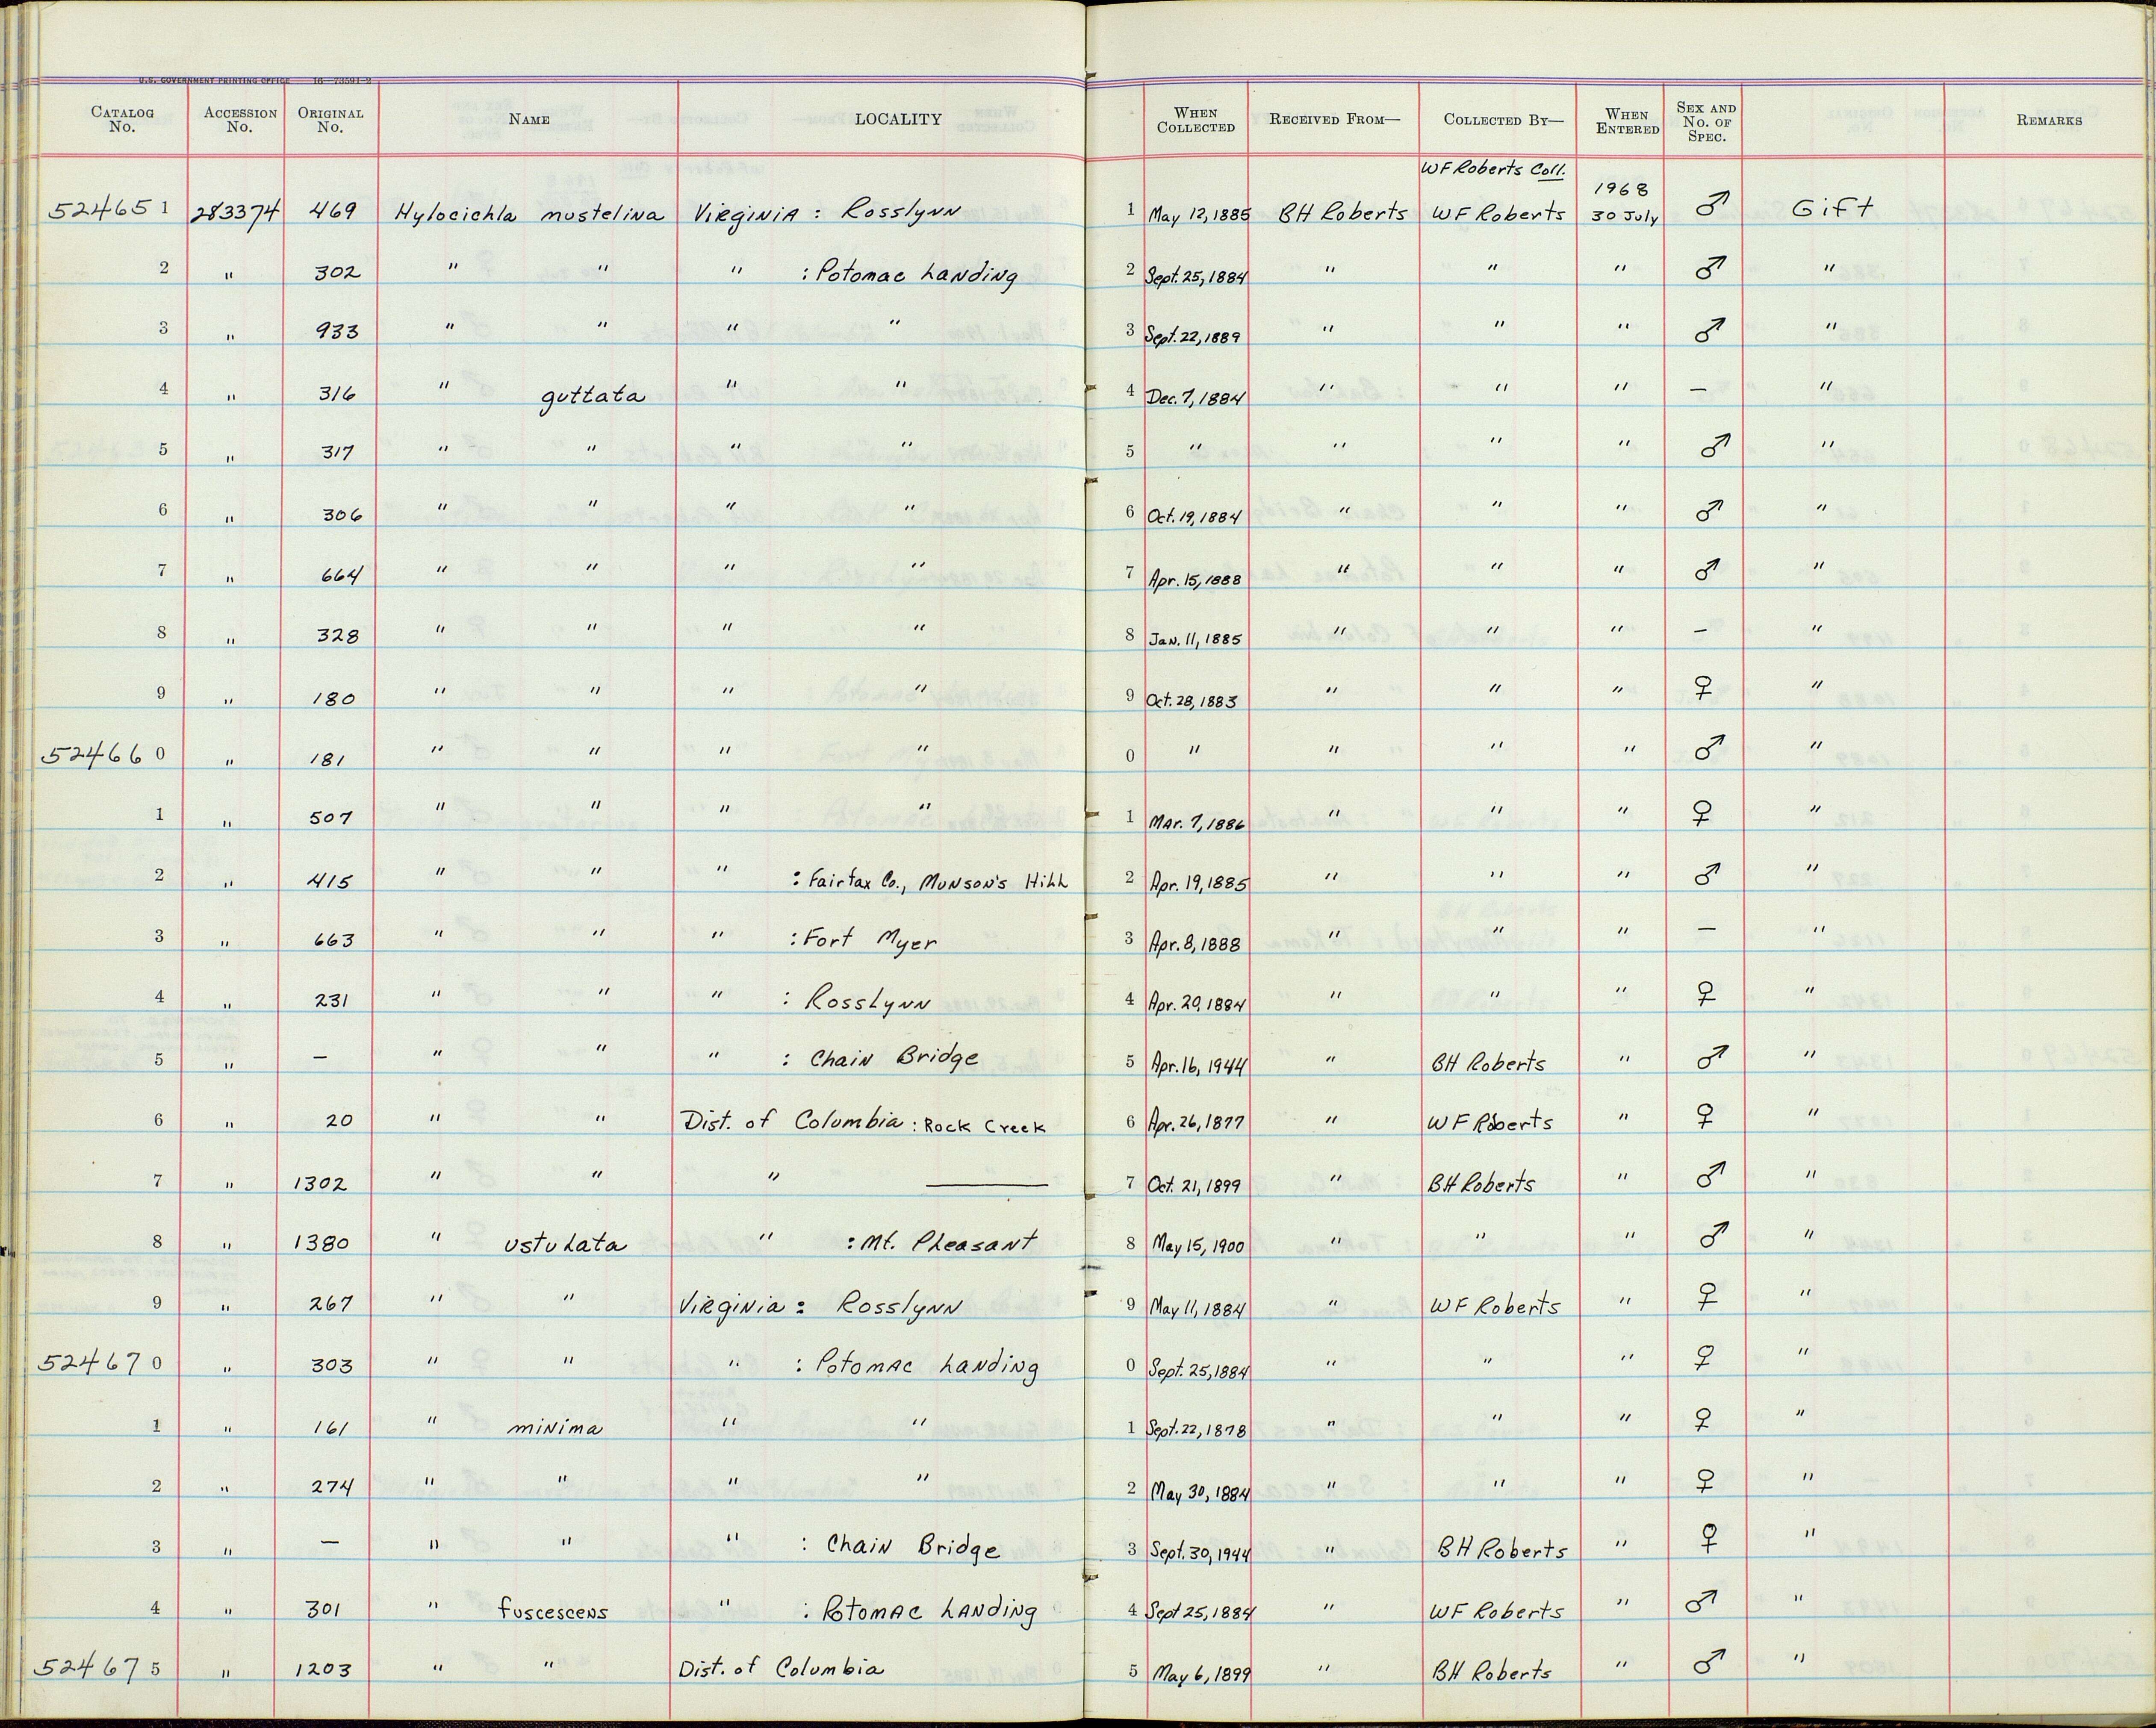 U.S. GOVERNMENT PRINTING OFFICE 16—73591-2
CATALOG No. ACCESSION No. ORIGINAL No. NAME LOCALITY WHEN COLLECTED RECEIVED FROM— COLLECTED BY— WHEN ENTERED SEX AND No. OF SPEC. REMARKS
WF Roberts Coll.
1968
524651 283374 469 Hylocichla mustelina Virginia : Rosslynn 1 May 12, 1885 BH Roberts WF Roberts 30 July ♂ Gift
2 " 302 " " " : Potomac Landing 2 Sept. 25, 1884 " " " ♂ "
3 " 933 " " " " 3 Sept. 22, 1889 " " " ♂ "
4 " 316 " guttata " " 4 Dec. 7, 1884 " " " — "
5 " 317 " " " " 5 " " " " ♂ "
6 " 306 " " " " 6 Oct. 19, 1884 " " " ♂ "
7 " 664 " " " " 7 Apr. 15, 1888 " " " ♂ "
8 " 328 " " " " 8 Jan. 11, 1885 " " " — "
9 " 180 " " " " 9 Oct. 28, 1883 " " " ♀ "
524660 " 181 " " " " 0 " " " " ♂ "
1 " 507 " " " " 1 Mar. 7, 1886 " " " ♀ "
2 " 415 " " " : Fairfax Co., Munson's Hill 2 Apr. 19, 1885 " " " ♂ "
3 " 663 " " " : Fort Myer 3 Apr. 8, 1888 " " " — "
4 " 231 " " " : Rosslynn 4 Apr. 20, 1884 " " " ♀ "
5 " — " " " : Chain Bridge 5 Apr. 16, 1944 " BH Roberts " ♂ "
6 " 20 " " Dist. of Columbia : Rock Creek 6 Apr. 26, 1877 " WF Roberts " ♀ "
7 " 1302 " " " —— 7 Oct. 21, 1899 " BH Roberts " ♂ "
8 " 1380 " ustulata " : Mt. Pleasant 8 May 15, 1900 " " " ♂ "
9 " 267 " " Virginia : Rosslynn 9 May 11, 1884 " WF Roberts " ♀ "
524670 " 303 " " " : Potomac Landing 0 Sept. 25, 1884 " " " ♀ "
1 " 161 " minima " " 1 Sept. 22, 1878 " " " ♀ "
2 " 274 " " " " 2 May 30, 1884 " " " ♀ "
3 " — " " " : Chain Bridge 3 Sept. 30, 1944 " BH Roberts " ♀ "
4 " 301 " fuscescens " : Potomac Landing 4 Sept 25, 1884 " WF Roberts " ♂ "
524675 " 1203 " " Dist. of Columbia 5 May 6, 1899 " BH Roberts " ♂ "